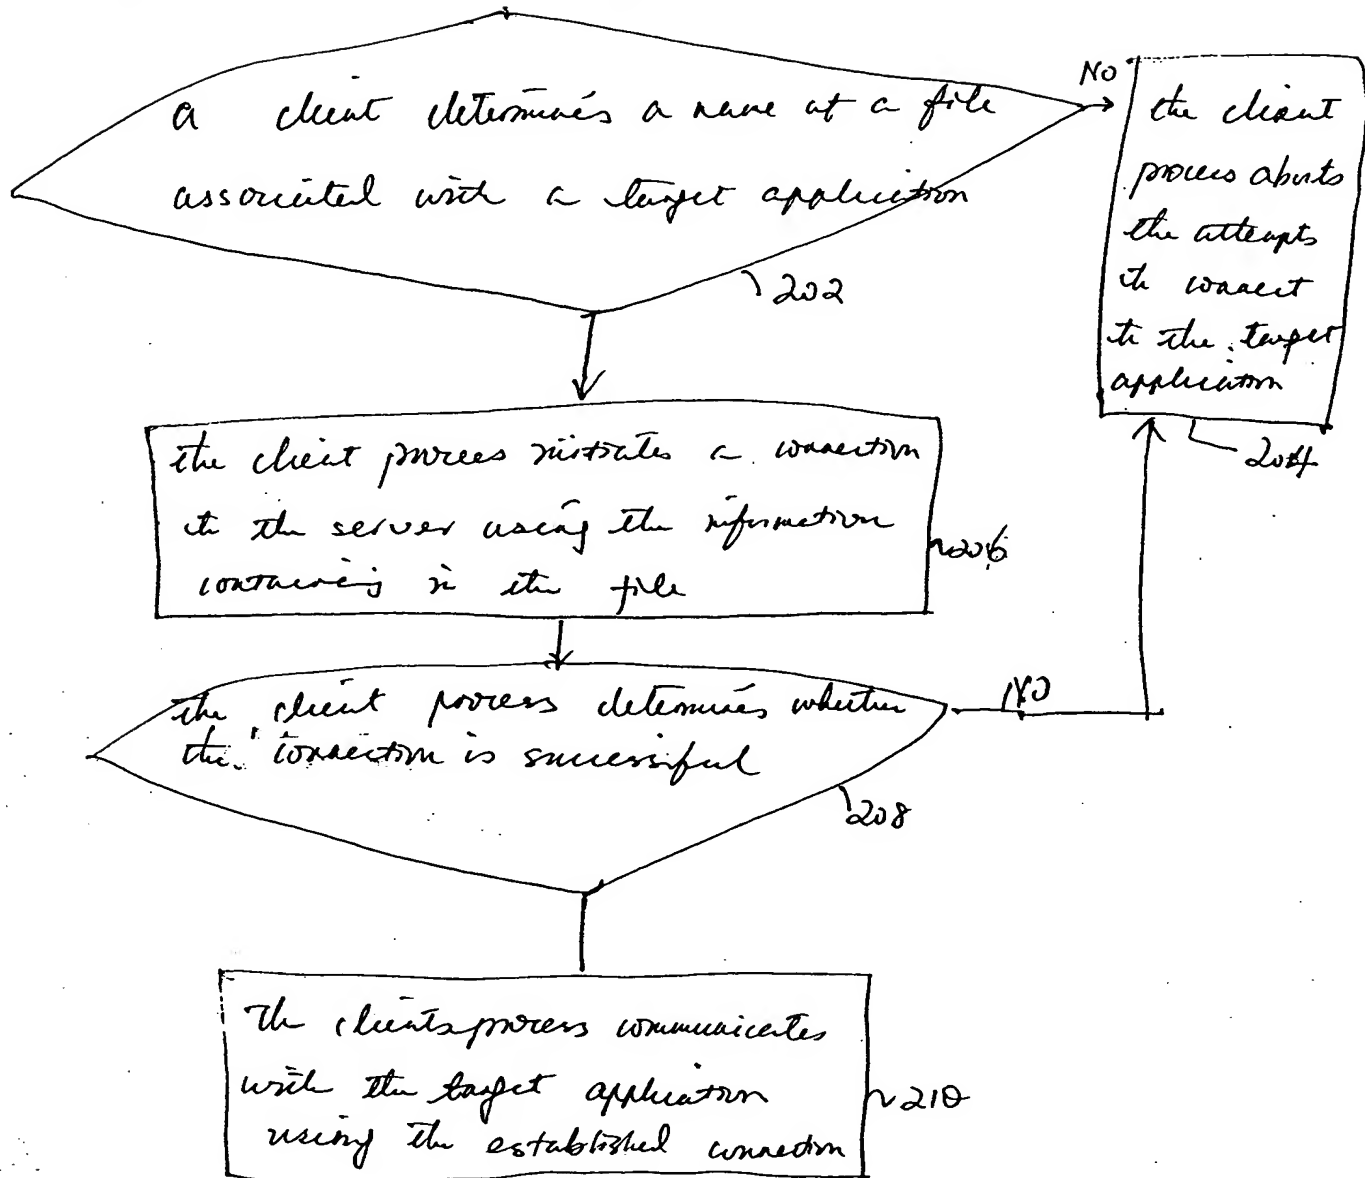 a client determines a name of a file
associated with a target application
202
NO
the client
process aborts
the attempts
to connect
to the target
application
204
the client process initiates a connection
to the server using the information
containing in the file
206
the client process determines whether
the connection is successful
NO
208
The clients process communicates
with the target application
using the established connection
210